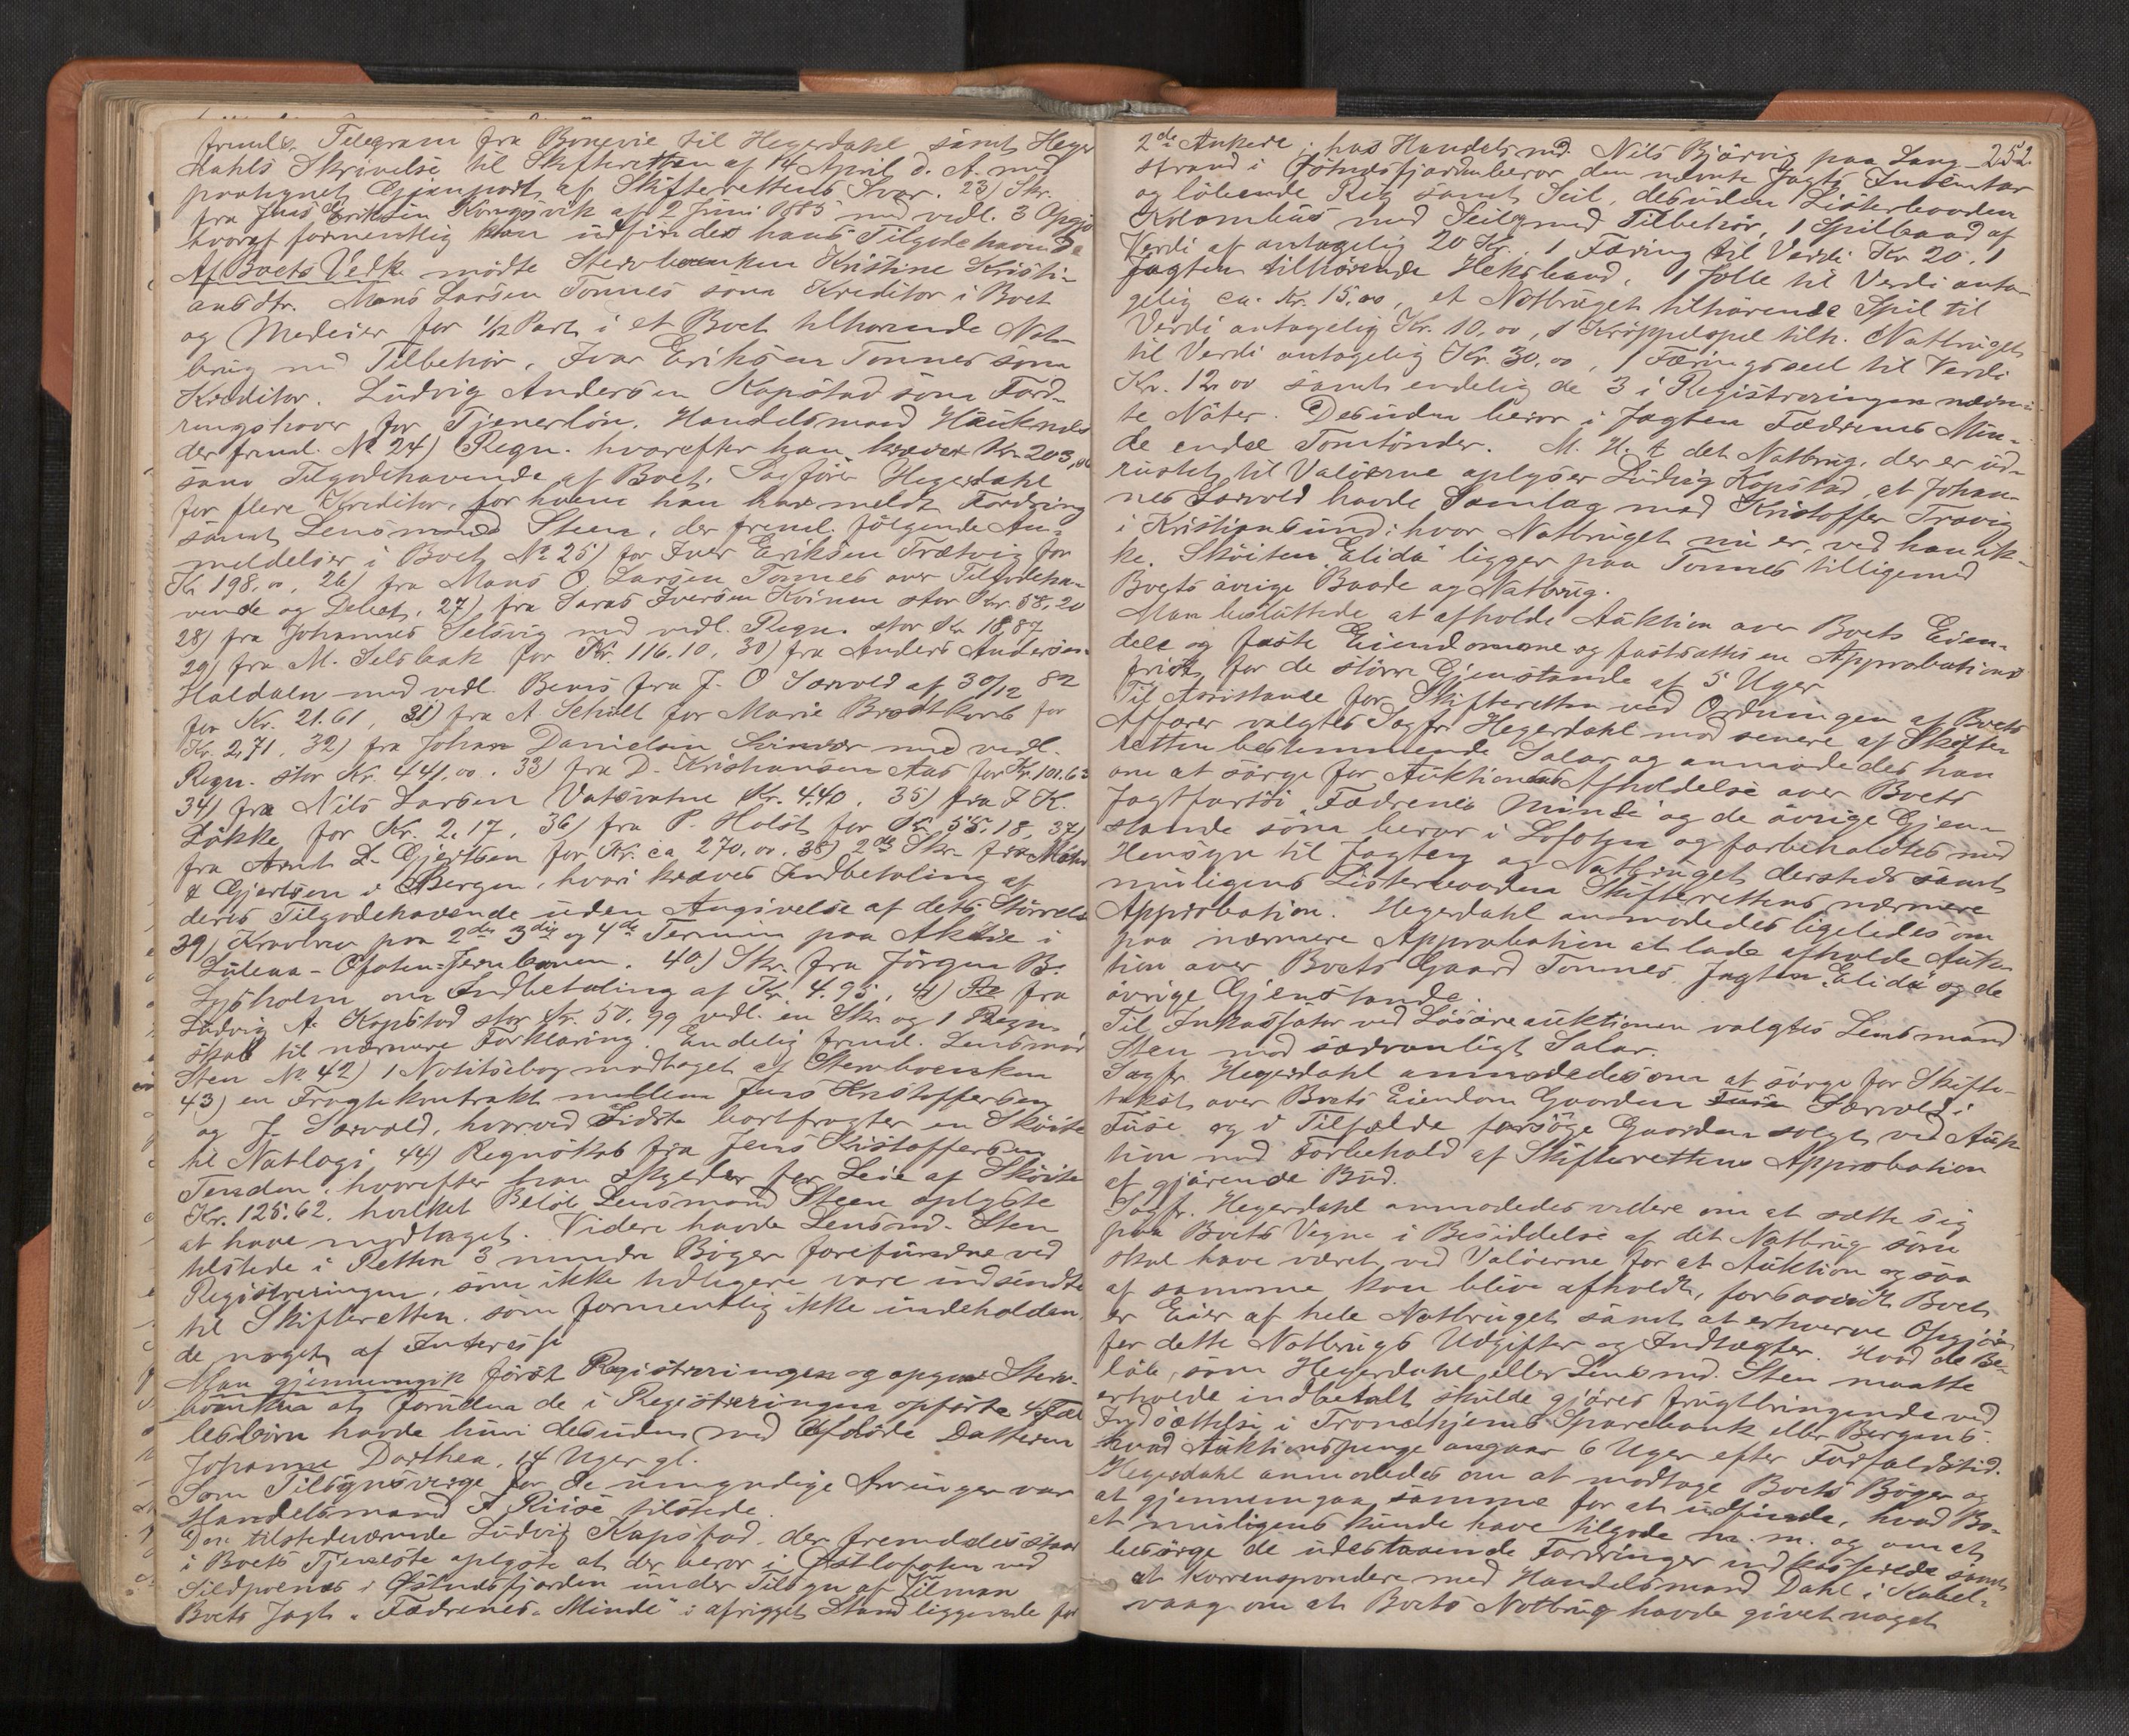 freml. Telegram fra Bonevie til Hegerdahl samt Heger
dahls Skrivelse til Skifteretten af 14 April d. A. med
paategnet Gjenpart af Skifterettens Svar. 23) Skr.
fra Jens Eriksen Kongsvik af 2 Juni 1885 med vedl. 3 Opgjør
hvoraf formentlig kan udfindes hans Tilgodehavende
Af Boets Vedk. mødte Stervboenken Kristine Kristi-
ansdtr. Mons Larsen Tonnes som Kreditor i Boet
og Medeier for 1/12 Part i et Boet tilhørende Not-
brug med Tilbehør, Ivar Eriksen Tonnes som
Kreditor. Ludvig Andersen Kopstad som Ford-
ringshaver for Tjenerløn. Handelsmand Hauknes
der freml. No 24) Regn. hvorefter han kræver Kr. 203,
som Tilgodehavende af Boet. Sagfører Hegerdahl
for flere Kreditor, for hvem han har meldt Fordring
samt Lensmand Steen, der freml. følgende An-
meldelser i Boet No 25) for Iver Eriksen Trætvig for
Kr 198,00, 26) fra Mons O. Larsen Tonnes over Tilgodeha-
vende og Debet, 27) fra Saras Iversen Kvinen stor Kr. 58,20
28) fra Johannes Selsvig med vedl. Regn. stor Kr. 18,87
29) fra M. Selsbak for Kr. 116.10, 30) fra Anders Andersen
Haldalen med vedl. Bevis fra J. O Sørvold af 30/12 82
for Kr. 21.61, 31) fra A Schult for Marie Brodtkorb for
Kr. 2,71, 32) fra Johan Danielsen Svinvær med vedl.
Regn. stor Kr. 441,00. 33) fra D. Kristiansen Aas for Kr. 101.62
34) fra Nils Larsen Vatsvatne Kr. 4.40. 35) fra J K.
Løkke for Kr. 2.17, 36) fra P. Holst for Kr. 55.18, 37)
fra Arnt L. Gjertsen for Kr. ca 270,00. 38) 2de Skr. fra Mohn
& Gjertsen i Bergen, hvori kræves Indbetaling af
deres Tilgodehavende uden Angivelse af dets Størrelse
39) Kravbrev paa 2den 3die og 4de Termin paa Aktie i
Luleaa-Ofoten-Jernbanen. 40) Skr. fra Jørgen B.
Lysholm om Indbetaling af Kr. 4.95, 41) fra
Ludvig A. Kopstad stor Kr. 50.99 vedl. en Skr. og 1 Regn-
skab til nærmere Forklaring. Endelig freml. Lensmand
Sten No 42) 1 Notitsebog modtaget af Stervboenken
43) en Fragtkontrakt mellem Jens Kristoffersen
og J. Sørvold, hvorved Sidste bortfragter en Skøite
til Natlogi 44) Regnskab fra Jens Kristoffersen
Tendon, hvorefter han skylder for Leie af Skøite
Kr. 125.62. hvilket Beløb Lensmand Steen oplyste
at have modtaget. Videre havde Lensmd. Sten
tilstede i Retten 3 mindre Bøger forefundne ved
Registreringen, som ikke tidligere vare indsendte
til Skifteretten. som formentlig ikke indeholden
de noget af Interesse
Man gjennemgik først Registreringen og opgav Sterv-
boenken at foruden de i Registreringen opførte 4 Fæl
lesbørn havde hun desuden med Afdøde Datteren
Johanne Dorthea, 14 Uger gl.
Som Tilsynsværge for de umyndige Arvinger var
Handelsmand A Riise tilstede.
Den tilstedeværende Ludvig Kopstad, der fremdeles staar
i Boets Tjeneste oplyste at der beror i Østlofoten ved
Sildpoenes i Østnesfjorden under Tilsyn af Jilman
Boets Jagt "Fædrenes Minde" i afrigget Stand liggende for
252
2de Ankere; hos Handelsmd. Nils Bjørvig paa Lang-
strand i Østnesfjorden beror den nævnte Jagts Inventar
og løbende Rig samt Seil, desuden Listerbaaden
Kolombus med Seil og med Tilbehør, 1 Spilbaad af
Verdi af antagelig 20 Kr., 1 Færing til Verdi Kr 20, 1
Jagten tilhørende Heksbaad, 1 Jolle til Verdi anta-
gelig ca. Kr. 15.00, et Notbruget tilhørende Spil til
Verdi antagelig Kr. 10,00, 1 Krøppelspel tilh. Notbruget
til Verdi antagelig Kr. 30,00, 1 Færingsseil til Verdi
Kr. 12.00 samt endelig de 3 i Registreringen nævn-
te Nøter. Desuden beror i Jagten Fædrenes Min-
de endel Tomtønder. M. H. t. det Notbrug, der er ud-
rustet til Valøerne oplyser Ludvig Kopstad, at Johan-
nes Sørvold havde Samlag med Kristoffer Trovig
i Kristiansund; hvor Notbruget nu er, ved han ik-
ke. Skøiten "Elida" ligger paa Tonnes tilligemed
Boets øvrige Baade og Notbrug.
Man besluttede at afholde Auktion over Boets Eien-
dele og faste Eiendomme og fastsattes en Approbations
frist for de større Gjenstande af 5 Uger
Til Assistance for Skifteretten ved Ordningen af Boets
Affærer valgtes Sagfr. Hegerdahl mod senere af Skifte-
retten bestemmende Salær og anmodedes han
om at sørge for Auktionens Afholdelse over Boets
Jagtfartøi "Fædrenes Minde" og de øvrige Gjen-
stande som beror i Lofoten og forbeholdtes med
Hensyn til Jagten og Notbruget dersteds samt
muligens Listerbaaden Skifterettens nærmere
Approbation. Hegerdahl anmodedes ligeledes om
paa nærmere Approbation at lade afholde Auk-
tion over Boets Gaard Tonnes, Jagten "Elida" og de
øvrige Gjenstande.
Til Inkassator ved Løsøreauktionen valgtes Lensmand
Sten mod sædvanligt Salær.
Sagfr. Hegerdahl anmodedes om at sørge for Skifte-
takst over Boets Eiendom Gaarden Sørvold i
Fuse og i Tilfælde forsøge Gaarden solgt ved Auk
tion med Forbehold af Skifterettens Approbation
af gjørende Bud.
Sagfr. Hegerdahl anmodedes videre om at sætte sig
paa Boets Vegne i Besiddelse af det Notbrug som
skal have været ved Valøerne for at Auktion ogsaa
af samme kan blive afholdt, forsaavidt Boet
er Eier af hele Notbruget samt at erhverve Opgjør
for dette Notbrugs Udgifter og Indtægter. Hvad de Be-
løb, som Hegerdahl eller Lensmd. Sten maatte
erholde indbetalt skulde gjøres frugtbringende ved
Indsættelse i Trondhjems Sparebank eller Bergens.
hvad Auktionspenge angaar 6 Uger efter Forfaldstid.
Hegerdahl anmodedes om at modtage Boets Bøger og
at gjennemgaa samme for at udfinde, hvad Bo-
et muligens kunde have tilgode m. m. og om at
besørge de udestaaende Fordringer indkasserede samt
at korrespondere med Handelsmand Dahl i Kabel-
vaag om at Boets Notbrug havde givet noget